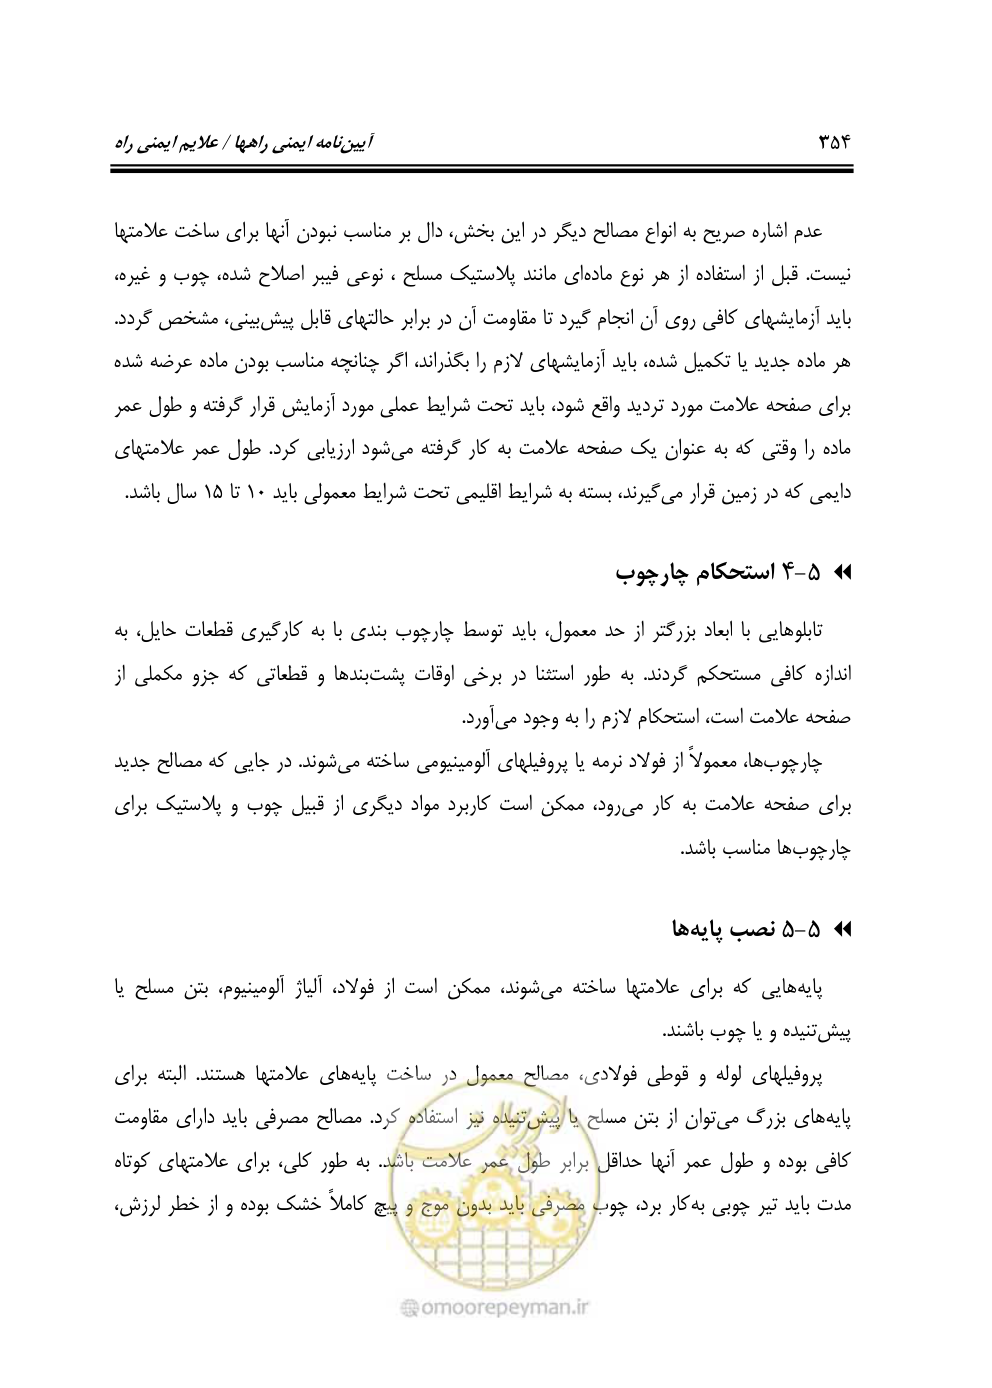 ۳۵۴
آیین‌نامه ایمنی راهها / علایم ایمنی راه
عدم اشاره صریح به انواع مصالح دیگر در این بخش، دال بر مناسب نبودن آنها برای ساخت علامتها
نیست. قبل از استفاده از هر نوع ماده‌ای مانند پلاستیک مسلح ، نوعی فیبر اصلاح شده، چوب و غیره،
باید آزمایشهای کافی روی آن انجام گیرد تا مقاومت آن در برابر حالتهای قابل پیش‌بینی، مشخص گردد.
هر ماده جدید یا تکمیل شده، باید آزمایشهای لازم را بگذراند، اگر چنانچه مناسب بودن ماده عرضه شده
برای صفحه علامت مورد تردید واقع شود، باید تحت شرایط عملی مورد آزمایش قرار گرفته و طول عمر
ماده را وقتی که به عنوان یک صفحه علامت به کار گرفته می‌شود ارزیابی کرد. طول عمر علامتهای
دایمی که در زمین قرار می‌گیرند، بسته به شرایط اقلیمی تحت شرایط معمولی باید ۱۰ تا ۱۵ سال باشد.
۵-۴ استحکام چارچوب
تابلوهایی با ابعاد بزرگتر از حد معمول، باید توسط چارچوب بندی با به کارگیری قطعات حایل، به
اندازه کافی مستحکم گردند. به طور استثنا در برخی اوقات پشت‌بندها و قطعاتی که جزو مکملی از
صفحه علامت است، استحکام لازم را به وجود می‌آورد.
چارچوب‌ها، معمولاً از فولاد نرمه یا پروفیلهای آلومینیومی ساخته می‌شوند. در جایی که مصالح جدید
برای صفحه علامت به کار می‌رود، ممکن است کاربرد مواد دیگری از قبیل چوب و پلاستیک برای
چارچوب‌ها مناسب باشد.
۵-۵ نصب پایه‌ها
پایه‌هایی که برای علامتها ساخته می‌شوند، ممکن است از فولاد، آلیاژ آلومینیوم، بتن مسلح یا
پیش‌تنیده و یا چوب باشند.
پروفیلهای لوله و قوطی فولادی، مصالح معمول در ساخت پایه‌های علامتها هستند. البته برای
پایه‌های بزرگ می‌توان از بتن مسلح یا پیش‌تنیده نیز استفاده کرد. مصالح مصرفی باید دارای مقاومت
کافی بوده و طول عمر آنها حداقل برابر طول عمر علامت باشد. به طور کلی، برای علامتهای کوتاه
مدت باید تیر چوبی به‌کار برد، چوب مصرفی باید بدون موج و پیچ کاملاً خشک بوده و از خطر لرزش،
امور پیمان
@omoorepeyman.ir